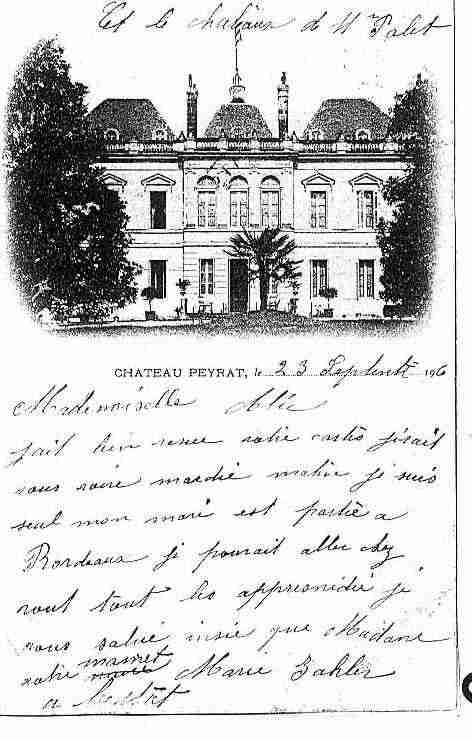 Et le château de Mr Palet
CHATEAU PEYRAT, le 23 Septembre 190
Mademoiselle
jait bien resue votre cartes j'irait
vous voire mardie matin je suis
seul mon mari est partie a
Bordeaux je pourait aller chez
vout tout les appremidié je
vous salue insie que Madame
votre mamet
Marie Zahler
a